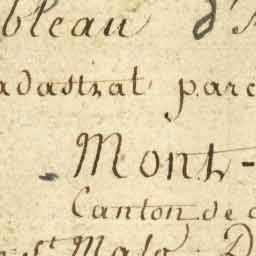 bleau d'
adastral parc
Mont-
Canton de
St Malo. D